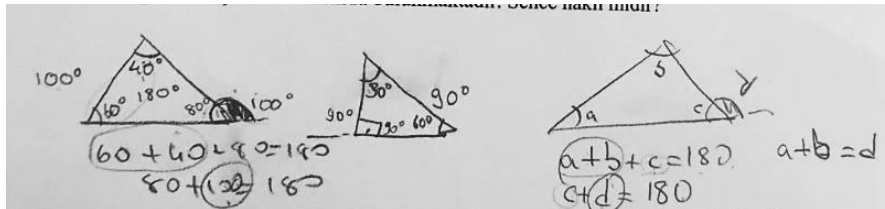 Sence haklı mıdır?
100° 40° 60° 180° 80° 100°
60 + 40 + 80 = 180
80 + 100 = 180
30° 90° 90° 90° 60°
b a c d
a+b+c=180
c+d=180
a+b=d